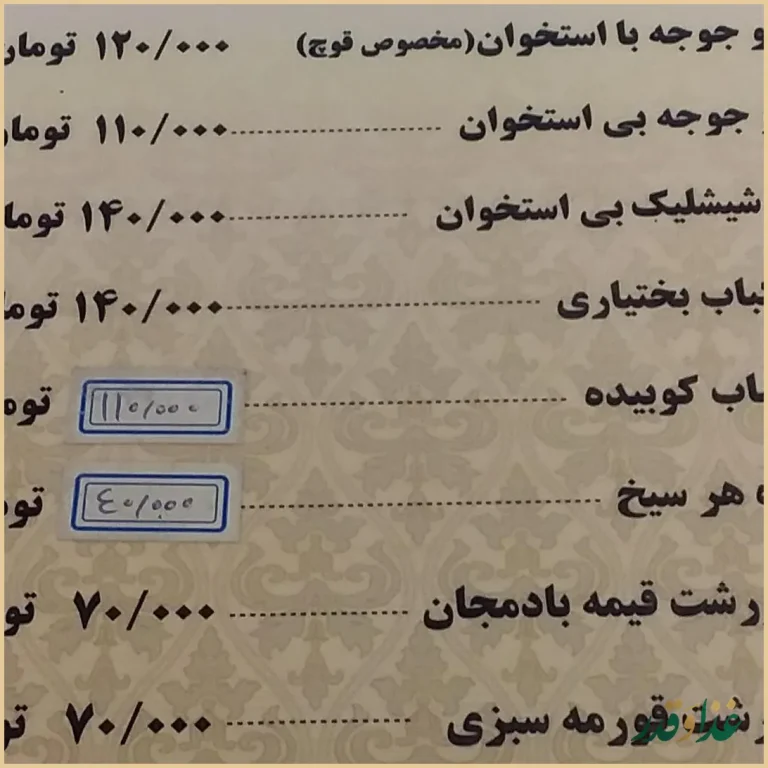 و جوجه با استخوان(مخصوص قوچ) ۱۲۰/۰۰۰ تومان
جوجه بی استخوان ۱۱۰/۰۰۰ تومان
شیشلیک بی استخوان ۱۴۰/۰۰۰ توما
باب بختیاری ۱۴۰/۰۰۰ توما
اب کوبیده ۱۱۰/۰۰۰ توم
ه هر سیخ ٤۰/۰۰۰ تو
رشت قیمه بادمجان ۷۰/۰۰۰ تو
رشت قورمه سبزی ۷۰/۰۰۰ تو